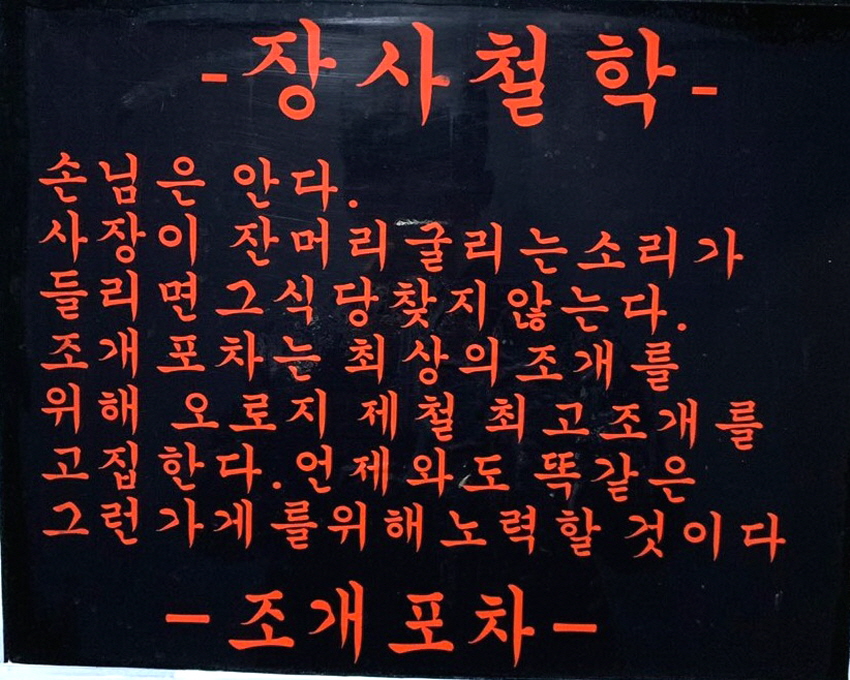 -장사철학-
손님은 안다.
사장이 잔머리 굴리는소리가
들리면 그식당찾지 않는다.
조개 포차는 최상의 조개를
위해 오로지 제철 최고조개를
고집한다.언제와도 똑같은
그런 가게를위해 노력할 것이다
-조개포차-